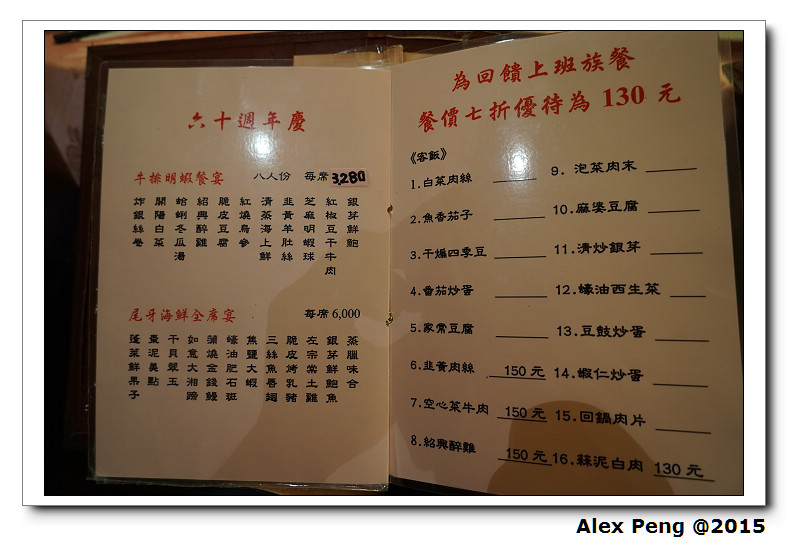 六十週年慶
牛排明蝦餐宴 八人份 每席3,280
銀芽鮮鮑
紅椒豆干牛肉
芝麻明蝦球
韭黃羊肚絲
清蒸海上鮮
紅燒烏參
脆皮豆腐
紹興醉雞
蛤蜊冬瓜湯
開陽白菜
炸銀絲卷
尾牙海鮮全席宴 每席6,000
蒸臘味合
銀芽鮮鮑魚
左宗棠土雞
脆皮烤乳豬
三絲魚唇翅
焦鹽大蝦
蠔油肥石斑
蒲燒金錢鰻
如意大湘蹄
干貝翠玉
棗泥美點
蓬萊鮮果子
為回饋上班族餐
餐價七折優待為 130 元
《客飯》
1.白菜肉絲
2.魚香茄子
3.干煸四季豆
4.番茄炒蛋
5.家常豆腐
6.韭黃肉絲 150元
7.空心菜牛肉 150元
8.紹興醉雞 150元
9.泡菜肉末
10.麻婆豆腐
11.清炒銀芽
12.蠔油西生菜
13.豆豉炒蛋
14.蝦仁炒蛋
15.回鍋肉片
16.蒜泥白肉 130元
Alex Peng @2015